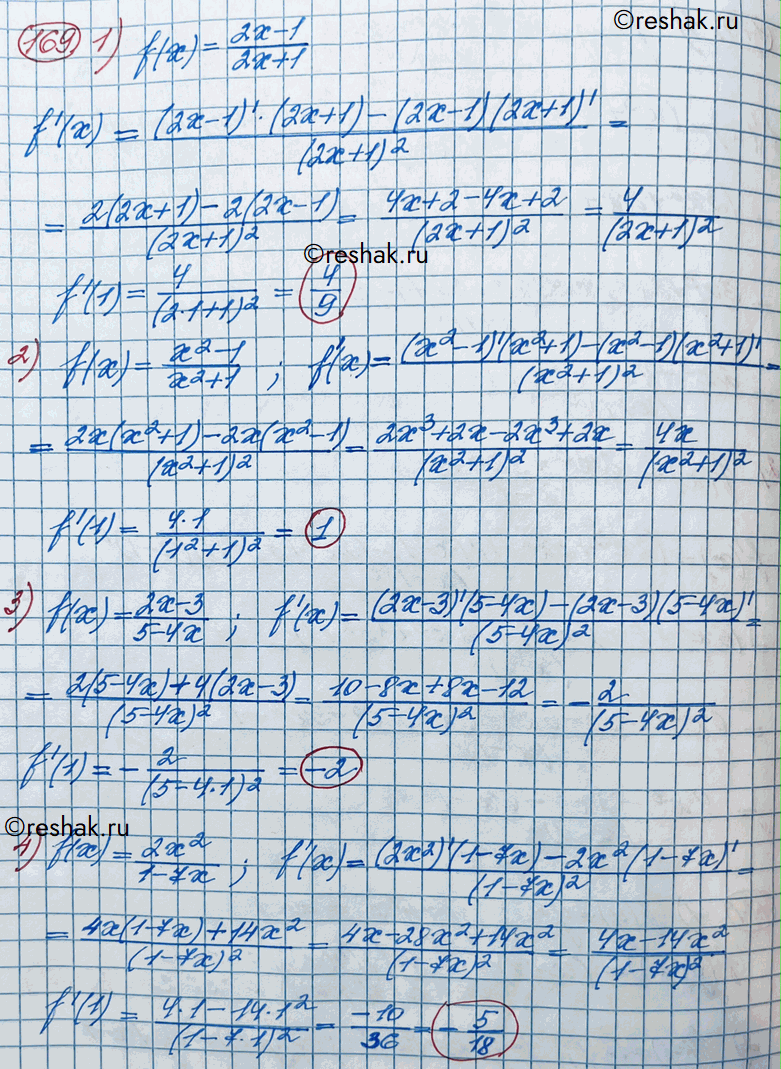 ©reshak.ru
169 1) f(x) = (2x-1)/(2x+1)
f'(x) = ((2x-1)'·(2x+1)-(2x-1)(2x+1)')/(2x+1)² =
= (2(2x+1)-2(2x-1))/(2x+1)² = (4x+2-4x+2)/(2x+1)² = 4/(2x+1)²
©reshak.ru
f'(1) = 4/(2·1+1)² = 4/9
2) f(x) = (x²-1)/(x²+1) ; f'(x) = ((x²-1)'(x²+1)-(x²-1)(x²+1)')/(x²+1)² =
= (2x(x²+1)-2x(x²-1))/(x²+1)² = (2x³+2x-2x³+2x)/(x²+1)² = 4x/(x²+1)²
f'(1) = (4·1)/(1²+1)² = 1
3) f(x) = (2x-3)/(5-4x) ; f'(x) = ((2x-3)'(5-4x)-(2x-3)(5-4x)')/(5-4x)² =
= (2(5-4x)+4(2x-3))/(5-4x)² = (10-8x+8x-12)/(5-4x)² = -2/(5-4x)²
f'(1) = -2/(5-4·1)² = -2
©reshak.ru
4) f(x) = 2x²/(1-7x) ; f'(x) = ((2x²)'(1-7x)-2x²(1-7x)')/(1-7x)² =
= (4x(1-7x)+14x²)/(1-7x)² = (4x-28x²+14x²)/(1-7x)² = (4x-14x²)/(1-7x)²
f'(1) = (4·1-14·1²)/(1-7·1)² = -10/36 = -5/18